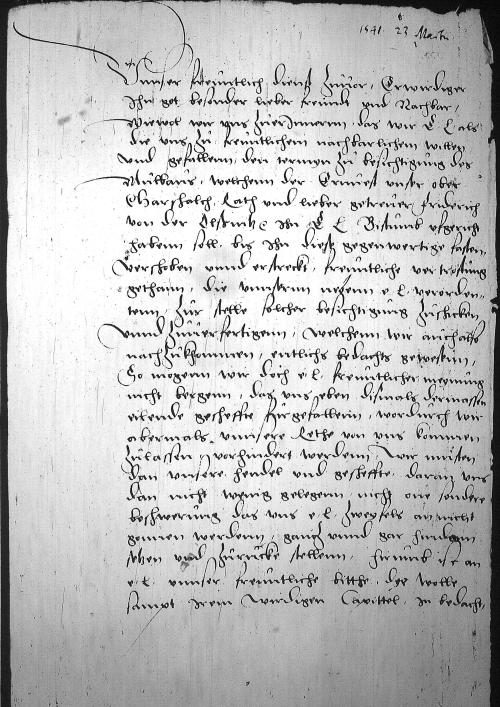 1541. 23 Martii
Vnnser freuntlich dienst zuuor, Erwirdiger
Ihn got besonder lieber freundt vnd Nachbar,
Wiewol wir vns zuerInnernn, das wir E L als
die vns zu freuntlichem nachbarlichem willen
vnd gefallenn, den termyn zu besichtigung des
Mulbaus, welchenn der Ernuest vnser ober
Marschalch, Rath vnd lieber getreuer friderich
von der ihn E L Bistumb vfgericht
habenn soll, bis ihn diese gegenwertige fasten,
verschoben vnnd erstreckt, freuntliche vertröstung
gethann, die vnnsernn nebenn e l verorden-
tenn, zur stelle solcher besichtigung zuschicken
vnnd zuuerfertigenn, welchem wir auch also
nachzukhommen, entlichs bedachts gewesenn,
So mogenn wir doch e l freuntlicher meynung
nicht bergenn, das vns eben dismals dermassen
eilende gescheffte furgefallenn, wordurch wir
abermals, vnnsere Rethe von vns kommen
zulassen, vorhindert werdenn, wir musten
dan vnsere hendel vnd gescheffte, daran vns
dan nicht wenig gelegenn, nicht one sondere
beschwerung das vns e l zweyfels an nicht
gonnen werdenn, gantz vnnd gar hindan
setzen vnd zurucke stellenn, hirumb ist an
e l vnnser freuntliche bitthe, die wolle
sampt irem wirdigen Capittel, in bedacht,